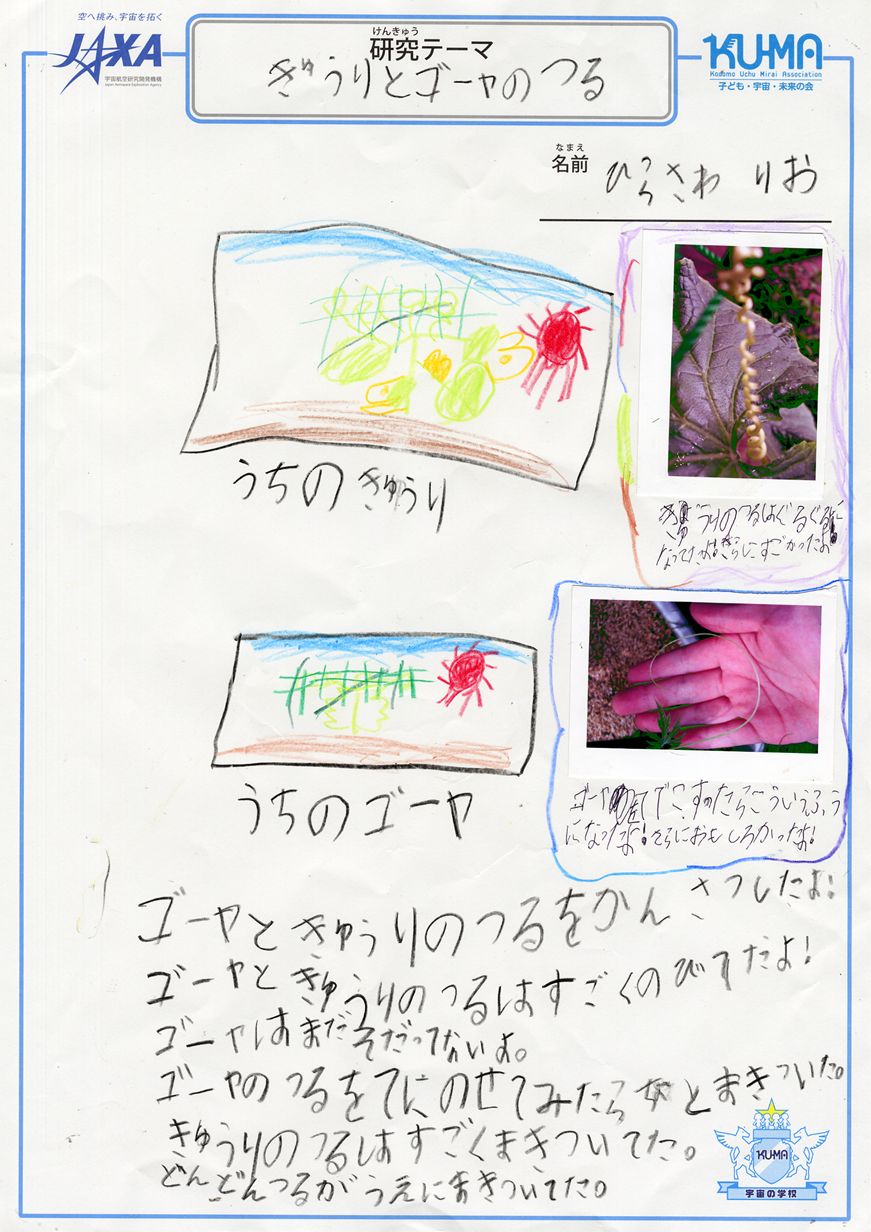 空へ挑み、宇宙を拓く
JAXA
宇宙航空研究開発機構
Japan Aerospace Exploration Agency
けんきゅう
研究テーマ
きゅうりとゴーヤのつる
KU-MA
Kodomo Uchu Mirai Association
子ども・宇宙・未来の会
なまえ
名前 ひらさわ りお
きゅうりのつるはぐるぐるに
なってたよ!さらにすごかったよ
うちのきゅうり
うちのゴーヤ
ゴーヤ てけこすったらこういうふう
になったよ!さらにおもしろかったよ!
ゴーヤときゅうりのつるをかんさつしたよ!
ゴーヤときゅうりのつるはすごくのびてたよ!
ゴーヤはまだそだってないよ。
ゴーヤのつるをてにのせてみたら とまきついた。
きゅうりのつるはすごくまきついてた。
どんどんつるがうえにまきついてた。
KU-MA
宇宙の学校